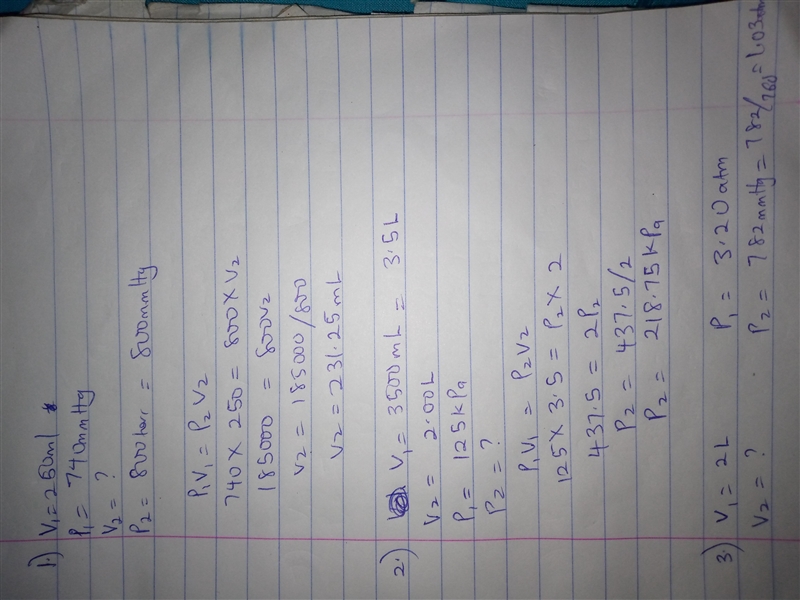 1.) V₁ = 250ml
P₁ = 740mmHg
V₂ = ?
P₂ = 800torr = 800mmHg
P₁V₁ = P₂V₂
740 × 250 = 800 × V₂
185000 = 800V₂
V₂ = 185000/800
V₂ = 231.25mL
2.) V₁ = 3500mL = 3.5L
V₂ = 2.00L
P₁ = 125kPa
P₂ = ?
P₁V₁ = P₂V₂
125 × 3.5 = P₂ × 2
437.5 = 2P₂
P₂ = 437.5/2
P₂ = 218.75kPa
3.) V₁ = 2L P₁ = 3.20atm
V₂ = ? P₂ = 782mmHg = 782/760 = 1.03atm